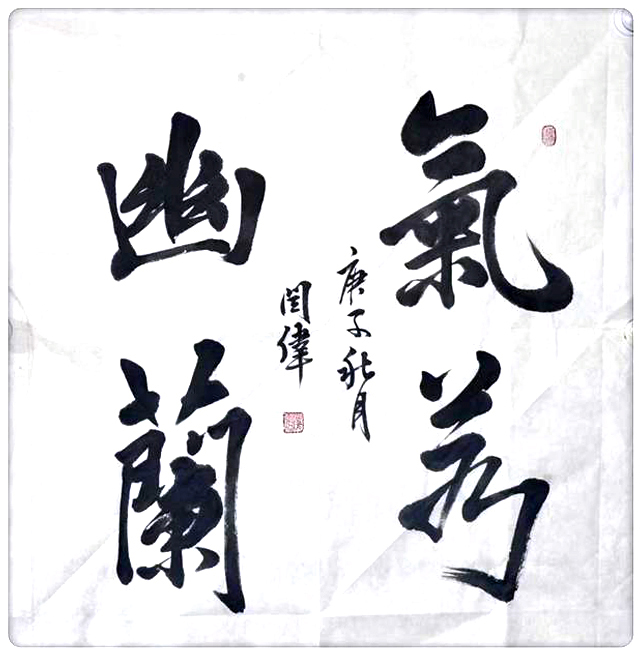 氣若
幽蘭
庚子秋月
閆偉